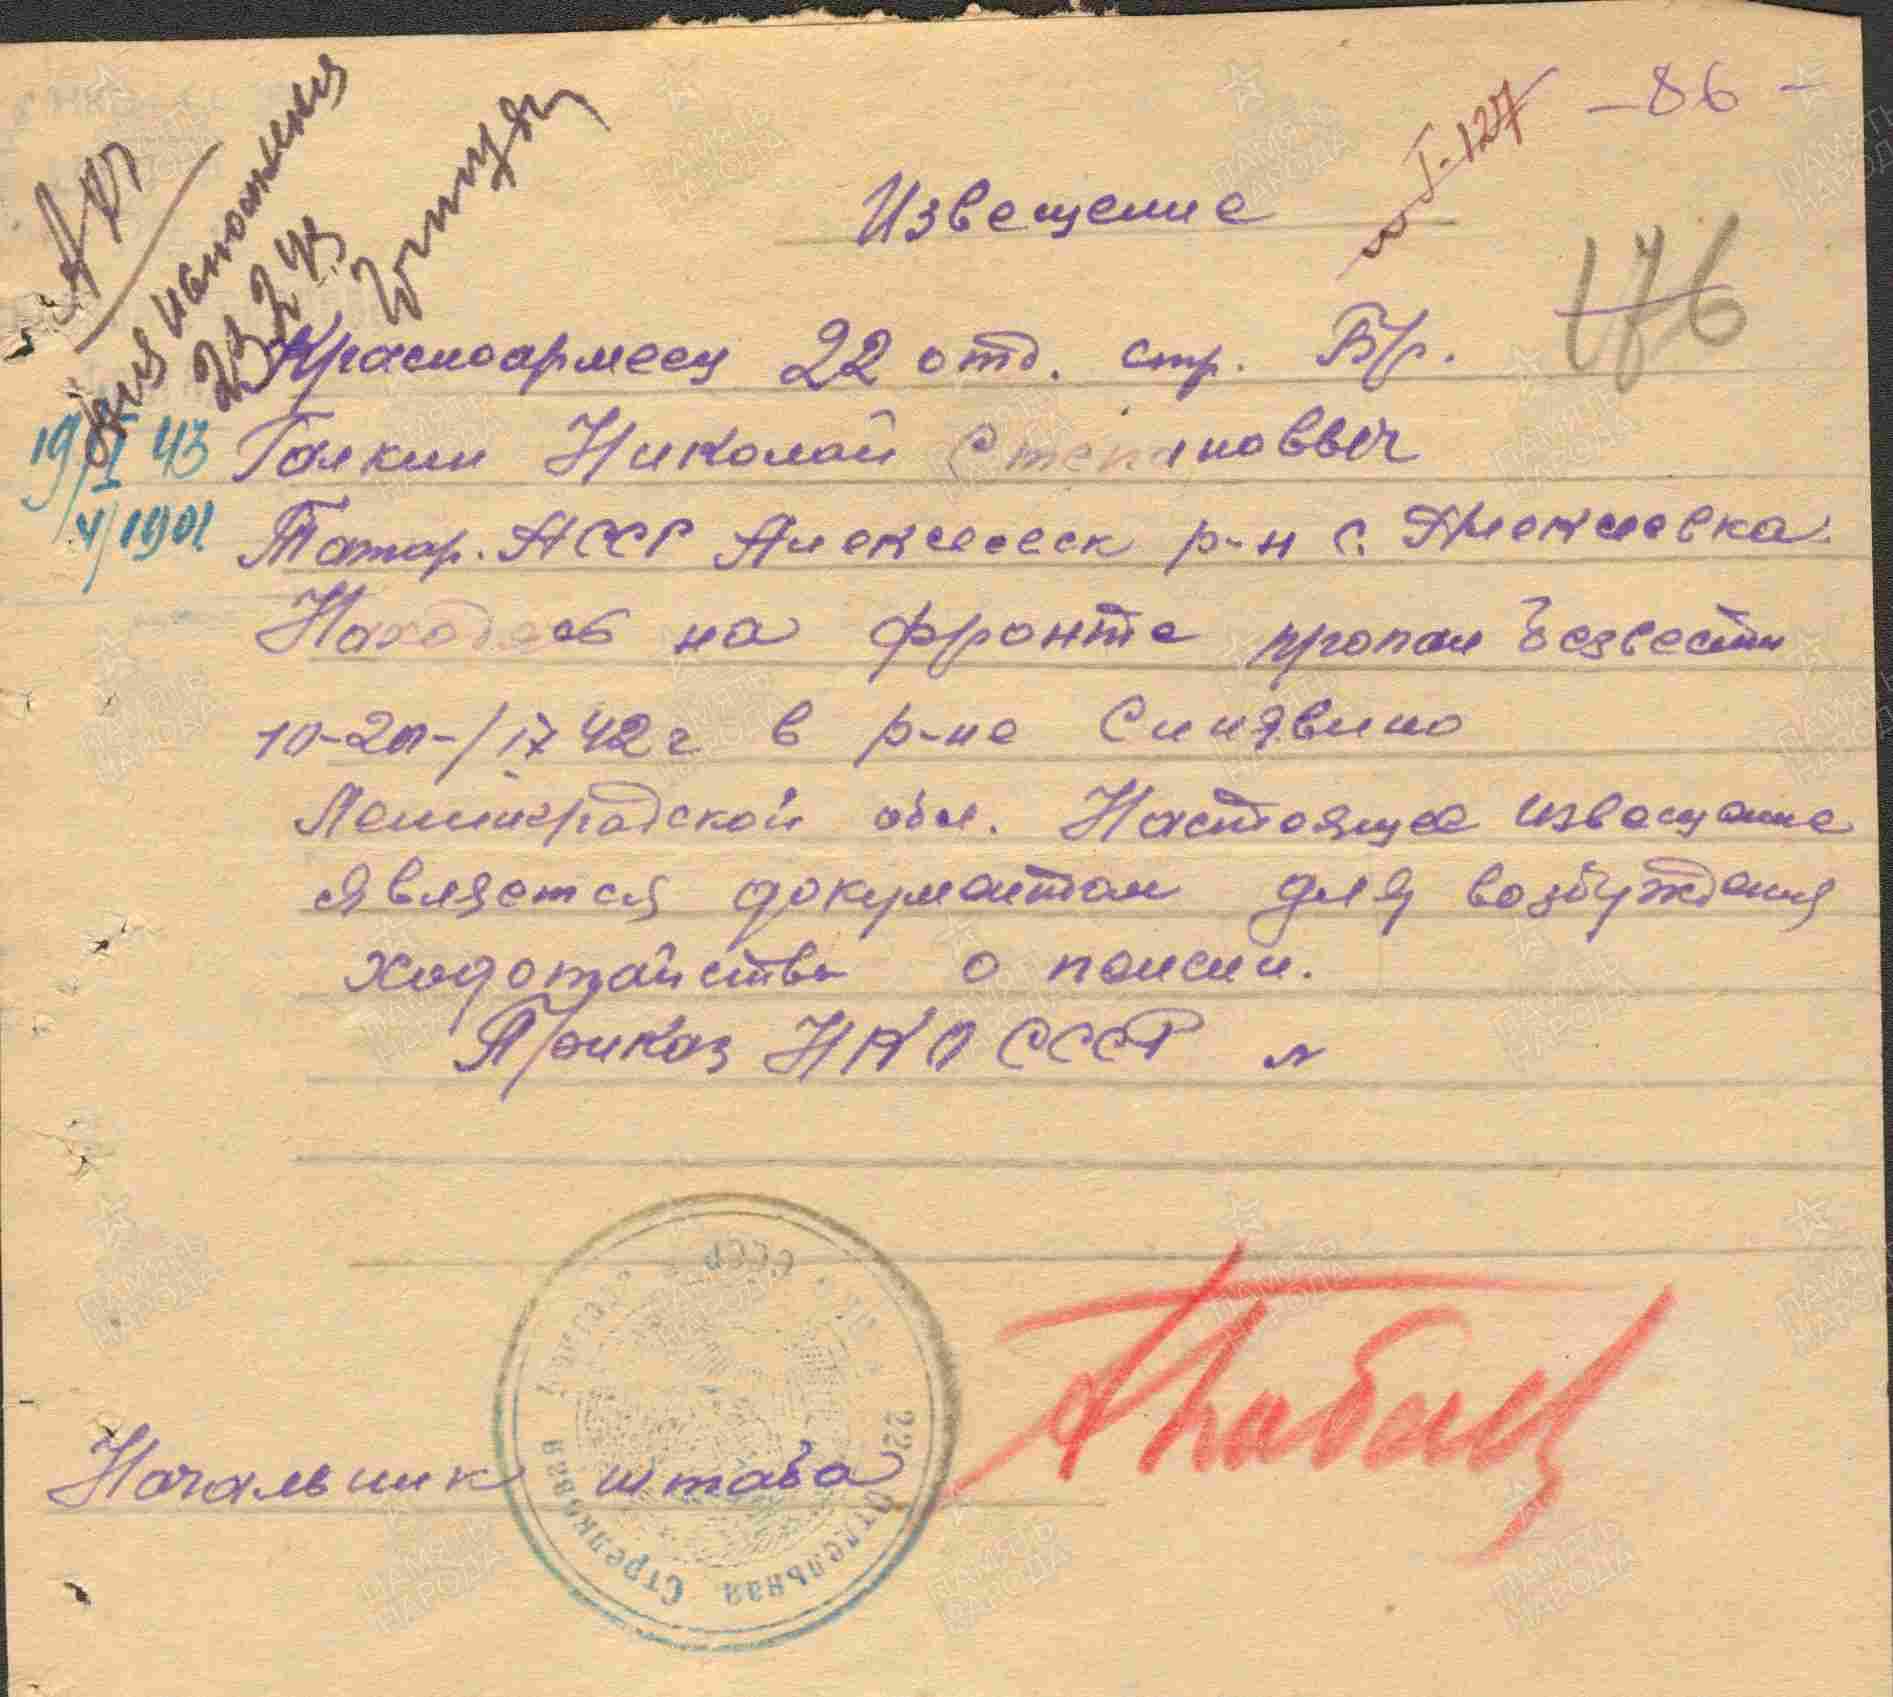 -86-
I-127
176
Извещение
23 2 43
Красноармеец 22 отд. стр. Бр.
19/I 43
Галкин Николай Степановвич
V/1901
Татар. АССР Алексеевск р-н с. Алексеевка.
Находясь на фронте пропал безвести
10-20-/IX 42 г в р-не Синявино
Ленинградской обл. Настоящее извещение
является документом для возбуждения
ходотайства о пенсии.
Приказ НКО СССР N
СССР
22 Отдельная Стрелковая
Начальник штаба